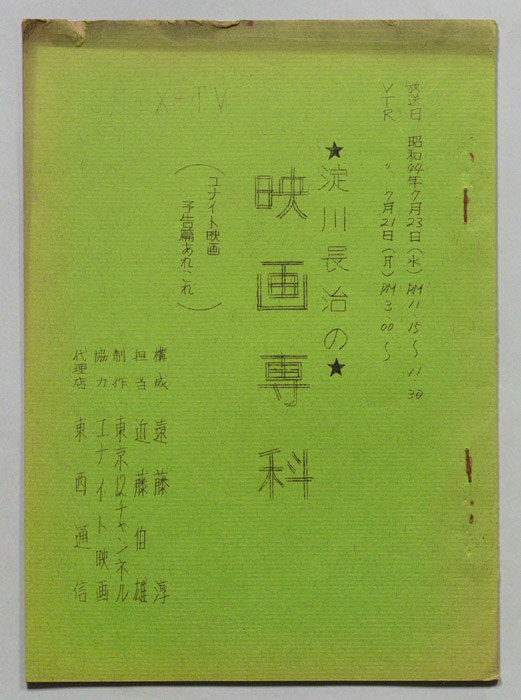 放送日 昭和44年7月23日(水)PM11.15〜11.30
VTR 〃 7月21日(月)PM3.00〜
★淀川長治の★
映画専科
(ユナイト映画
予告篇あれこれ)
X-TV
構成 遠藤淳
担当 近藤伯雄
制作 東京12チャンネル
協力 ユナイト映画
代理店 東西通信